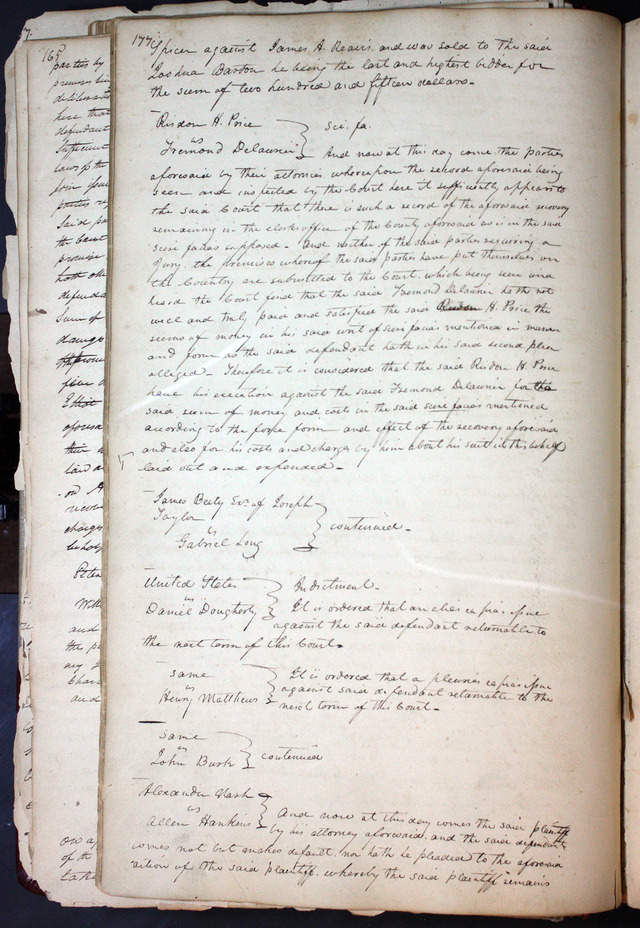 177
Spicer against James A. Reavis and was sold to the said
Joshua Barton he being the last and highest bidder for
the sum of two hundred and fifteen dollars.
Risdon H. Price
vs
Fremond Delaurier
sci. fa.
And now at this day come the parties
aforesaid by their attornies whereupon the record aforesaid being
seen and inspected by the Court here it sufficiently appears to
the said Court that there is such a record of the aforesaid recovery
remaining in the clerks office of the County aforesaid as is in the said
scire facias supposed. And neither of the said parties requiring a
Jury, the premises whereof the said parties have put themselves on
the Country are submitted to the Court which being seen and
heard the Court find that the said Fremond Delaurier hath not
well and truly paid and satisfied the said Risdon H. Price the
sums of money in his said writ of scire facias mentioned in manner
and form as the said defendant hath in his said second plea
alleged. Therefore it is considered that the said Risdon H. Price
have his execution against the said Fremond Delaurier for the
said sum of money and costs in the said scire facias mentioned
according to the force form and effect of the recovery aforesaid
and also for his costs and charges by him about his suit in this behalf
laid out and expended.
James Beety Exr. of Joseph
Taylor
vs
Gabriel Long
continued.
United States
vs
Daniel Dougherty
Indictment.
It is ordered that an alias capias issue
against the said defendant returnable to
the next term of this Court.
same
vs
Henry Matthews
It is ordered that a pleuries capias issue
against said defendant returnable to the
next term of this Court.
same
vs
John Burk
continued
Alexander Nash
vs
Allen Hankins
And now at this day comes the said plaintiff
by his attorney aforesaid and the said defendant
comes not but makes default nor hath he pleaded to the aforesaid
action of the said plaintiff whereby the said plaintiff remains
165
parties by
defendant
laws of the
parties
said pa
the Court
promise
both
defenda
sum of
damage
five
laid
on
charges
Peter
and
the
any
Char
and
of the
take